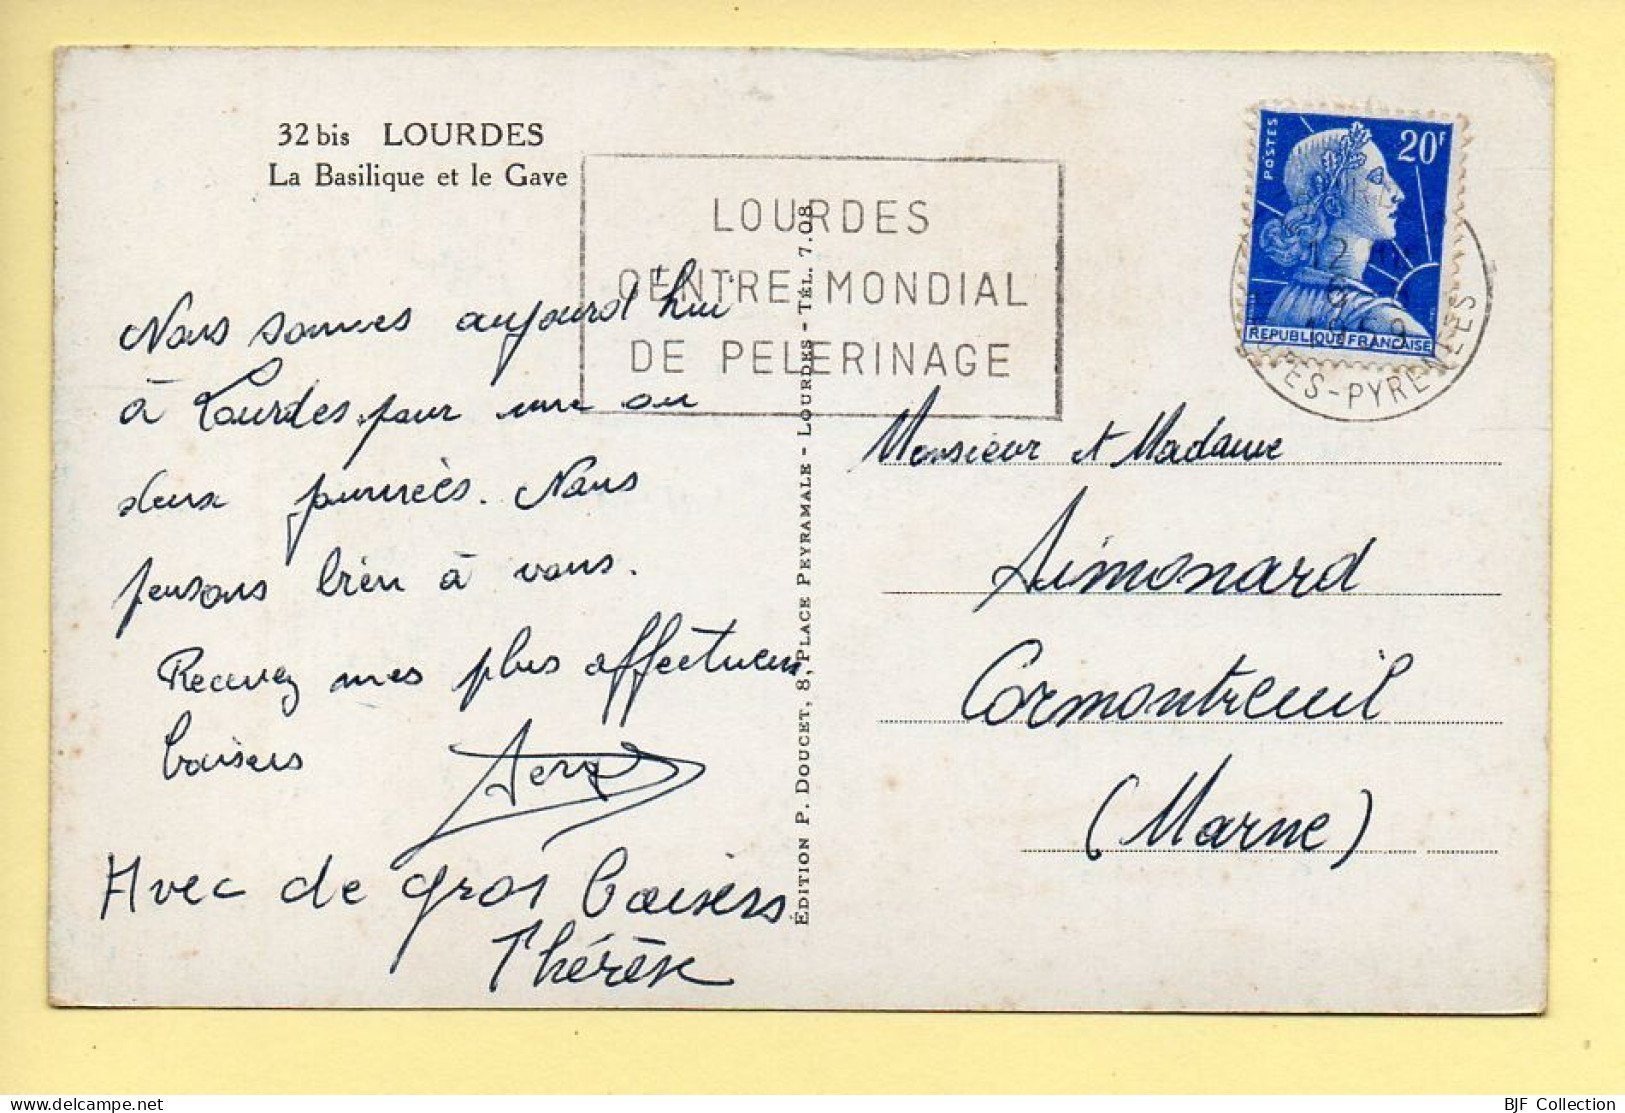 32 bis LOURDES
La Basilique et le Gave
LOURDES
CENTRE MONDIAL
DE PELERINAGE
POSTES
20F
REPUBLIQUE FRANÇAISE
ES-PYRENEES
Nous sommes aujourd'hui
à Lourdes pour une ou
deux journées. Nous
pensons bien à vous.
Recevez mes plus affectueux
baisers
Avec de gros baisers
Thérèse
ÉDITION P. DOUCET, 8, PLACE PEYRAMALE - LOURDES - TÉL. 7.08
Monsieur et Madame
Simonard
Cormontreuil
(Marne)
delcampe.net
BJF Collection